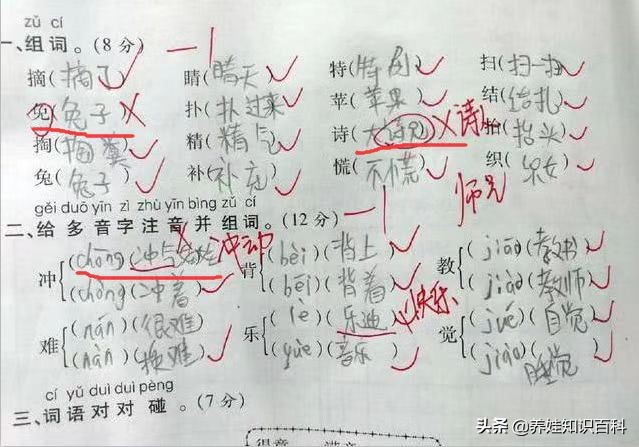 zǔ cí
一、组词。(8分) —1
摘(摘了) 睛(晴天) 特(特别) 扫(扫一扫)
免(兔子) 扑(扑过来) 苹(苹果) 结(结扎)
掏(掏粪) 精(精气) 诗(大诗兄) 诗 抬(抬头)
兔(兔子) 补(补充) 慌(不慌) 织(织女)
师兄
gěi duō yīn zì zhù yīn bìng zǔ cí
二、给多音字注音并组词。(12分) —1
冲 (chōng)(冲气娃娃) 冲动 背 (bèi)(背上) 教 (jiāo)(教书)
(chòng)(冲着) (bēi)(背着) (jiào)(教师)
难 (nán)(很难) 乐 (lè)(乐迪) 快乐 觉 (jué)(自觉)
(nàn)( 难) (yuè)(音乐) (jiào)(睡觉)
cí yǔ duì duì pèng
三、词语对对碰。(7分)
头条 @养娃知识百科